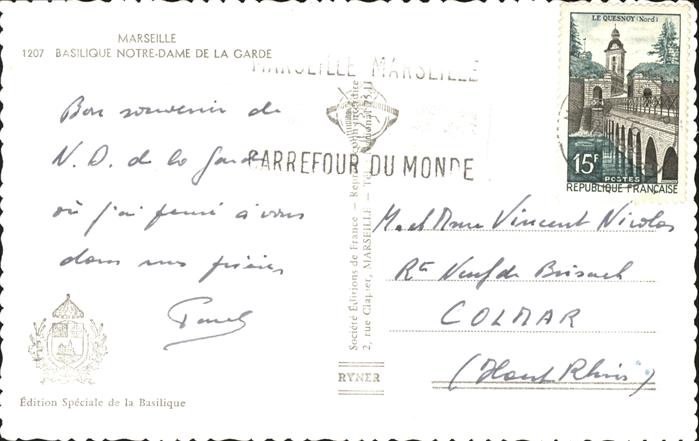 MARSEILLE
1207 BASILIQUE NOTRE-DAME DE LA GARDE
Bon souvenir de
N. D. de la Garde
où j'ai pensé à vous
dans mes prières
Édition Spéciale de la Basilique
MARSEILLE MARSEILLE
CARREFOUR DU MONDE
Société Éditions de France - Reproduction interdite
2, rue Clapier, MARSEILLE - Tél.
RYNER
LE QUESNOY (Nord)
15F
POSTES
RÉPUBLIQUE FRANÇAISE
M. et Mme Vincent Nicolas
Rte Neuf de Brisach
COLMAR
(Haut Rhin)